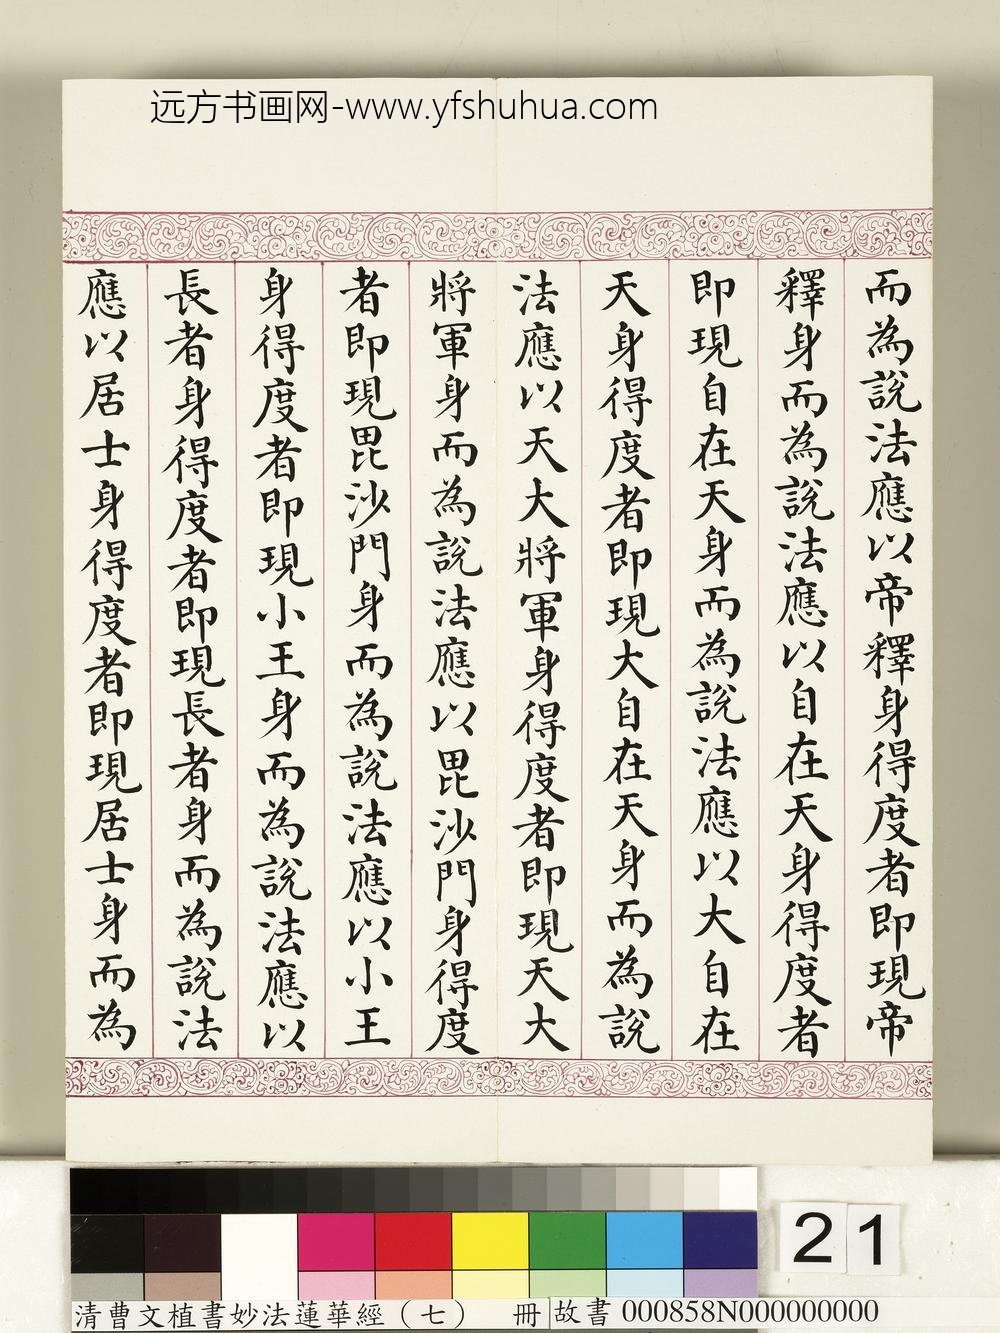 远方书画网-www.yfshuhua.com
而為說法應以帝釋身得度者即現帝
釋身而為說法應以自在天身得度者
即現自在天身而為說法應以大自在
天身得度者即現大自在天身而為說
法應以天大將軍身得度者即現天大
將軍身而為說法應以毘沙門身得度
者即現毘沙門身而為說法應以小王
身得度者即現小王身而為說法應以
長者身得度者即現長者身而為說法
應以居士身得度者即現居士身而為
21
清曹文植書妙法蓮華經（七） 冊 故書 000858N000000000